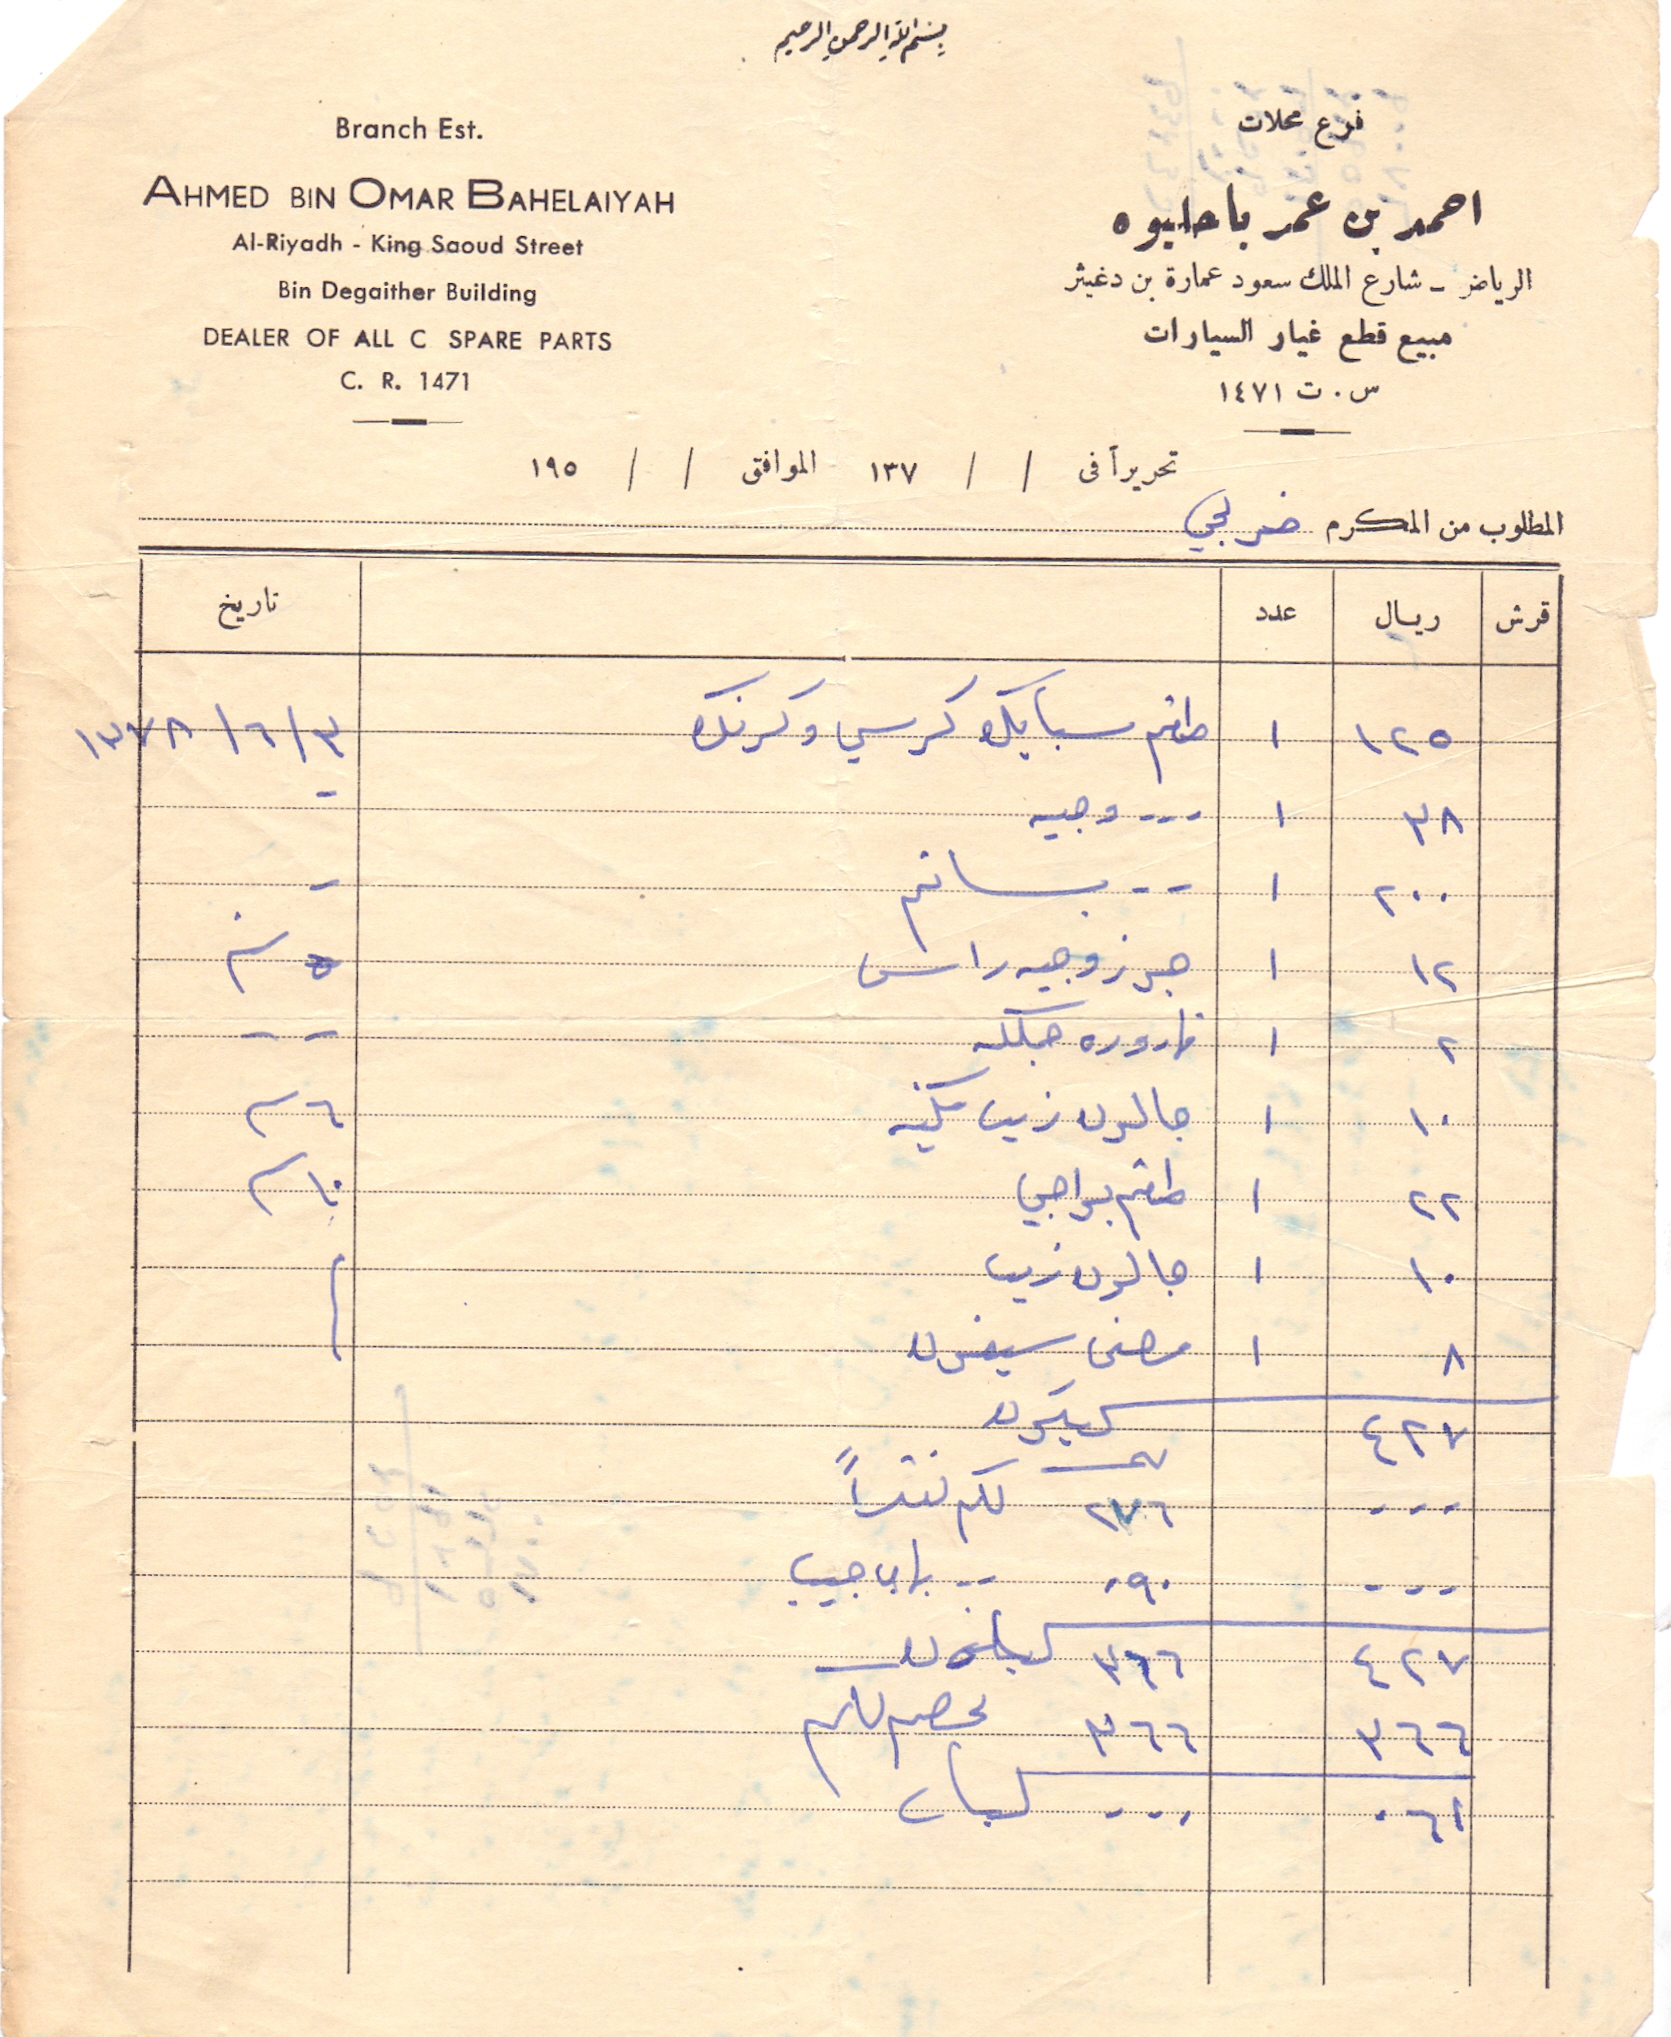 بسم الله الرحمن الرحيم
Branch Est.
AHMED BIN OMAR BAHELAIYAH
Al-Riyadh - King Saoud Street
Bin Degaither Building
DEALER OF ALL C SPARE PARTS
C. R. 1471
فرع محلات
احمد بن عمر باحليوه
الرياض - شارع الملك سعود عمارة بن دغيثر
مبيع قطع غيار السيارات
س . ت ١٤٧١
تحريراً فى / / ١٣٧ الموافق / / ١٩٥
المطلوب من المكرم
قرش ريال عدد تاريخ
١٢٥ ١ طقم سبايك كرسي وكرنك ٣/٦/١٣٧٨
٣٨ ١ --- وجيه -
٢٠٠ ١ -- بساتم -
١٢ ١ جوز وجيه راس ٥
٢ ١ قاروره - -
١٠ ١ جالون زيت مكينه ٦
٢٢ ١ طقم بواجي ١٠
١٠ ١ جالون زيت
٨ ١ مصفى سيفون
٤٢٧ ليكون
--- ٢٧٦ لكم نقداً
--- ٠٩٠ --
٤٢٧ ٣٦٦
٣٦٦ ٣٦٦ يخصم لكم
٠٦١ ---